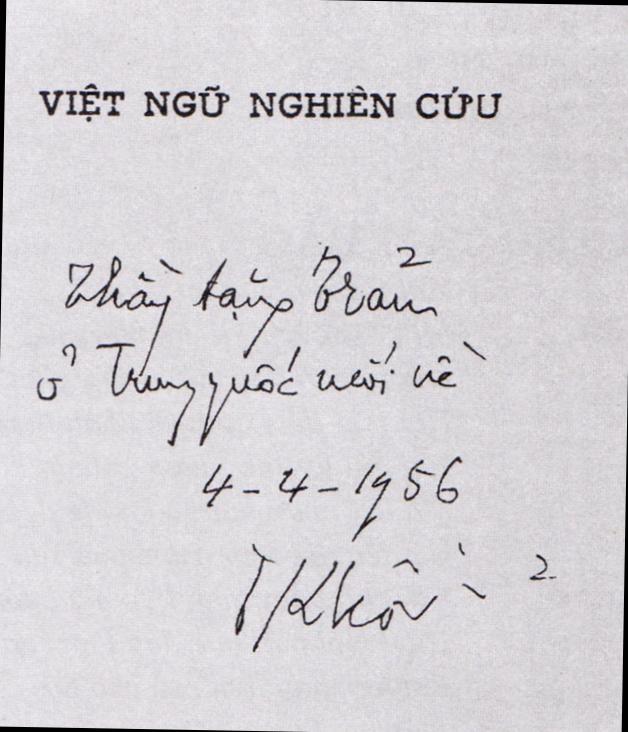 VIỆT NGỮ NGHIÊN CỨU
Thầy tặng Trản
ở Trung quốc mới về
4-4-1956
Khôi